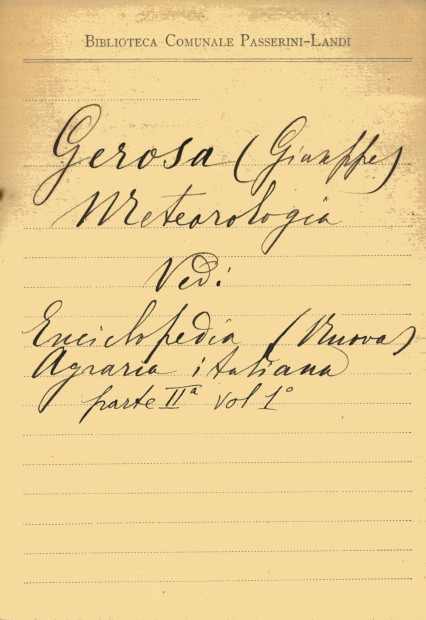 BIBLIOTECA COMUNALE PASSERINI-LANDI
Gerosa (Giuseppe)
Meteorologia
Vedi
Enciclopedia (Nuova)
Agraria italiana
parte IIª vol 1°